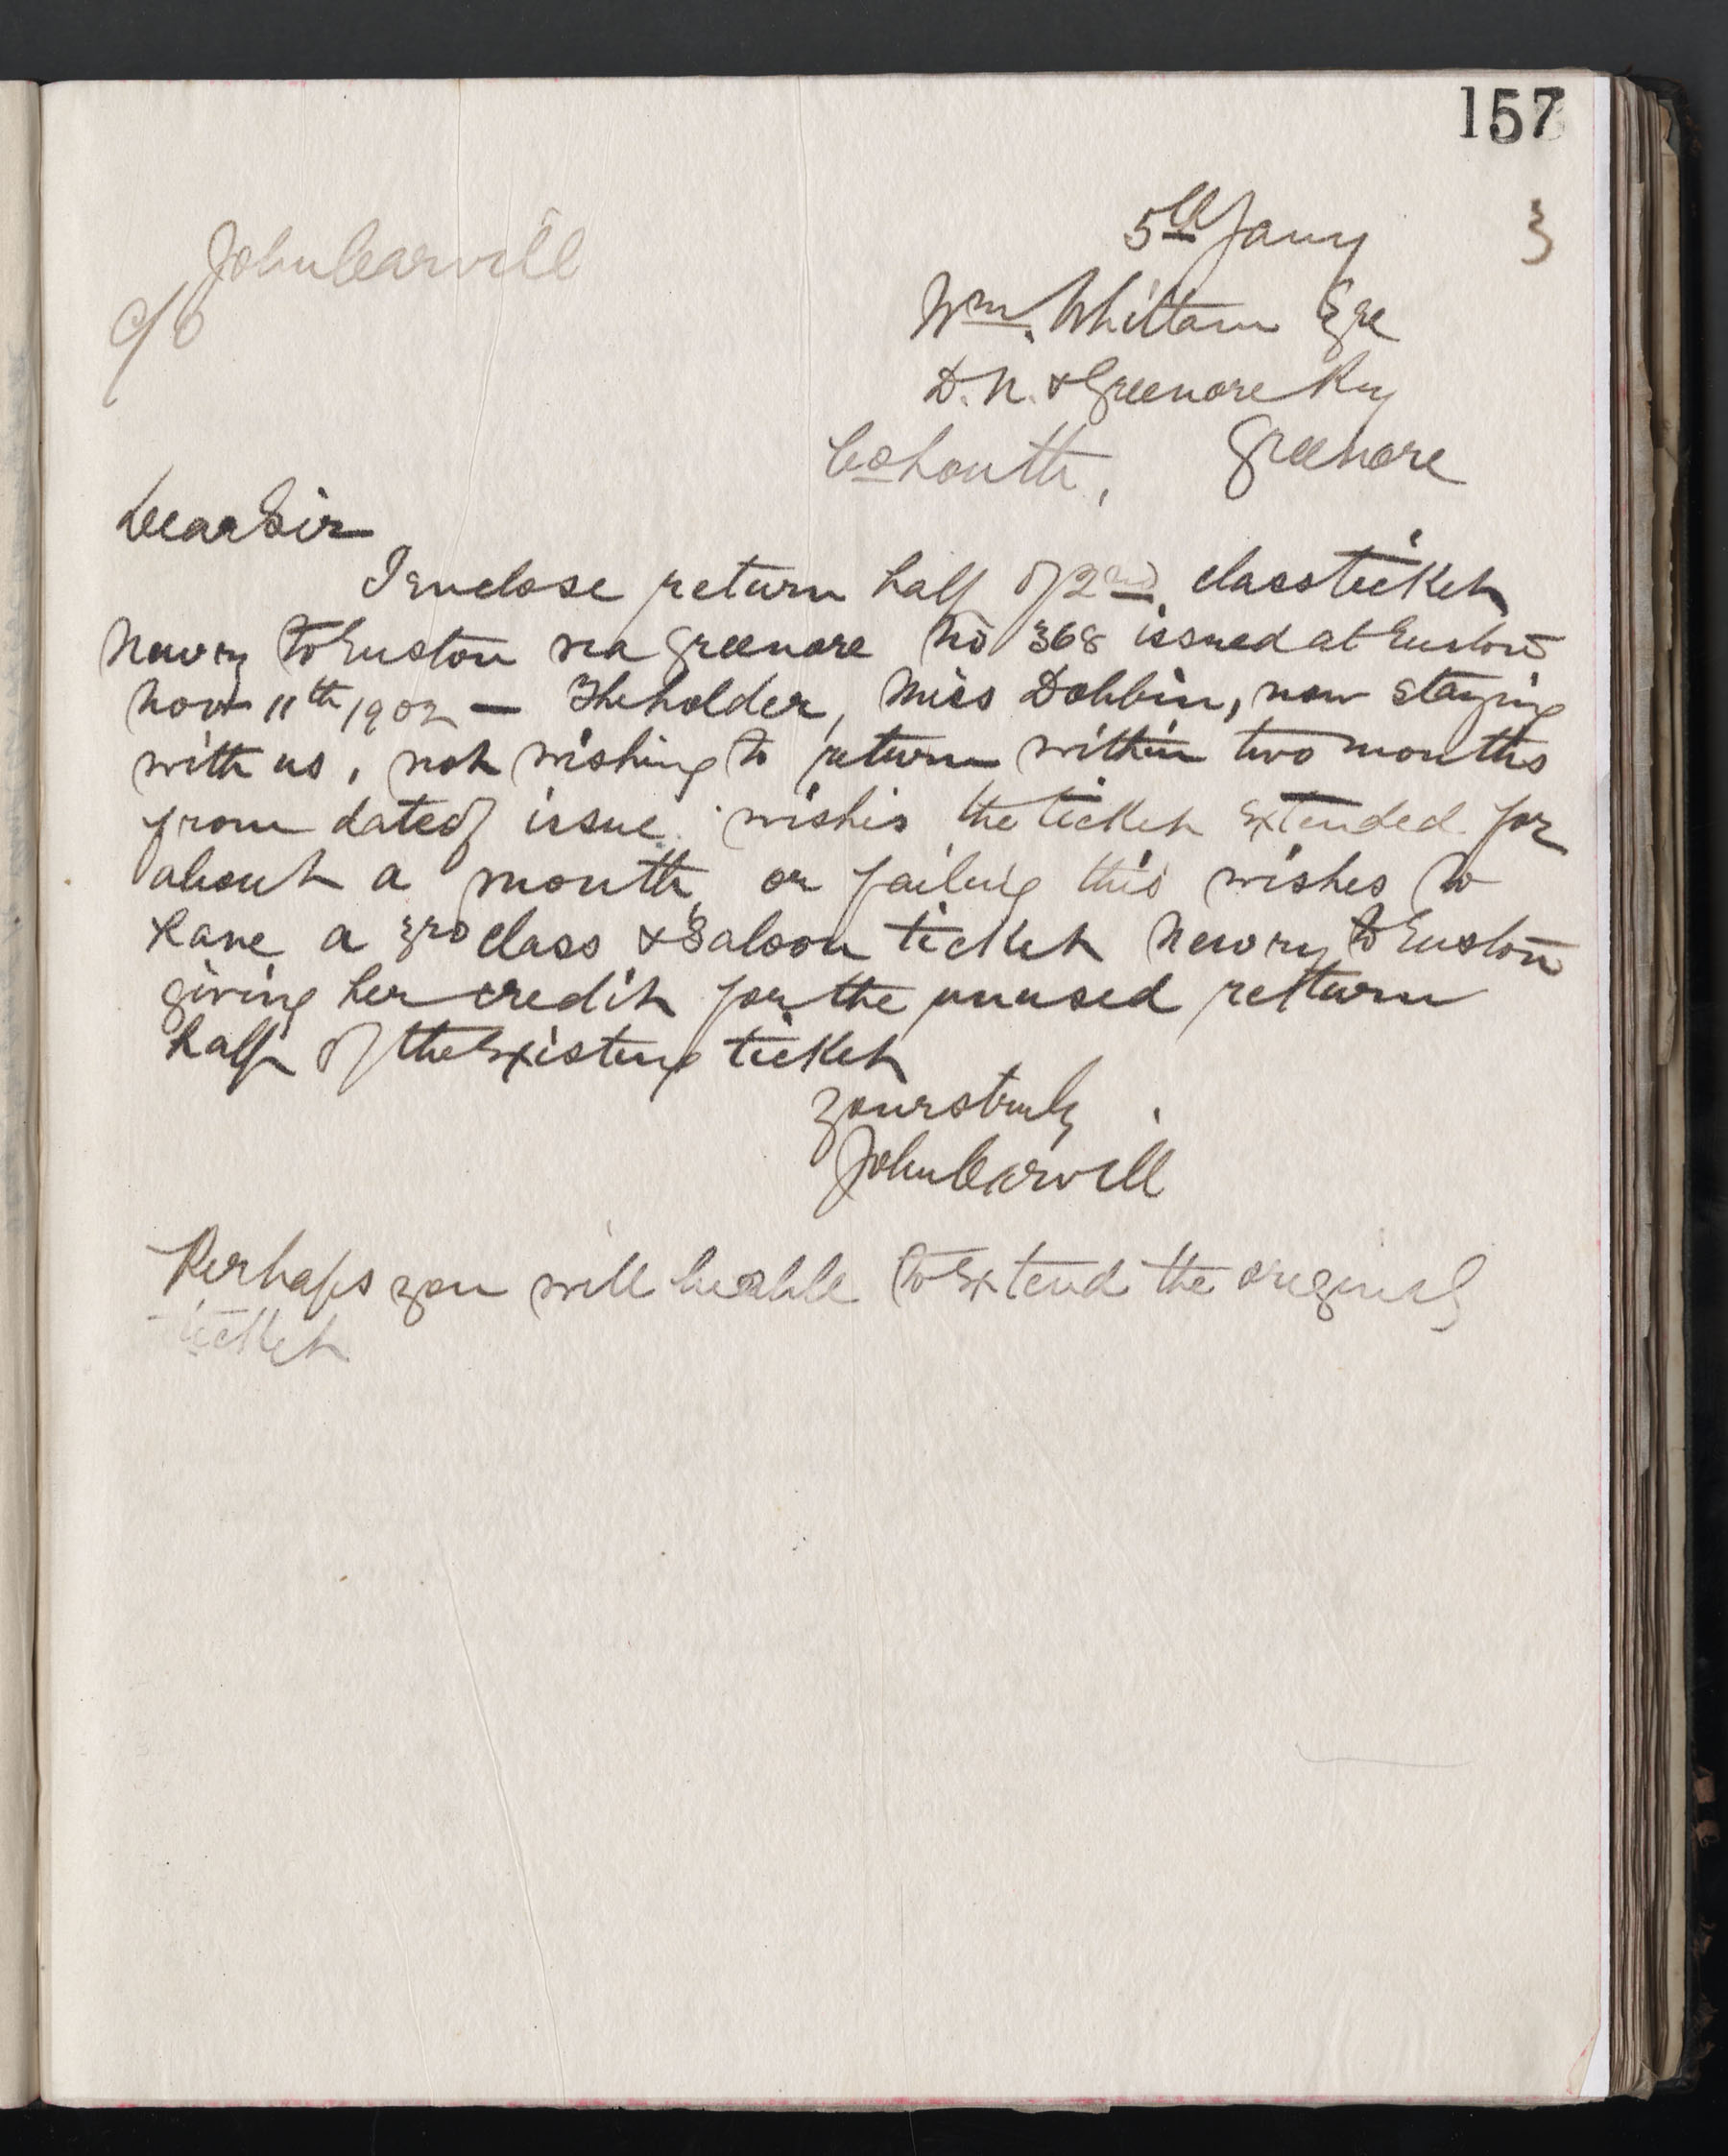 157
5th Jany 3
John Carvill
c/o
Wm. Whittam Esqe
D. N. & Greenore Ry
Co Louth, Greenore
Dear Sir
I enclose return half of 2nd class ticket
Newry to Euston via Greenore No 368 issued at Euston
Novr 11th 1902 — The holder, Miss Dobbin, now staying
with us, not wishing to return within two months
from date of issue wishes the ticket extended for
about a month, or failing this wishes to
have a 3rd class & Saloon ticket Newry to Euston
giving her credit for the unused return
half of the existing ticket
Yours truly
John Carvill
Perhaps you will be able to extend the original
ticket